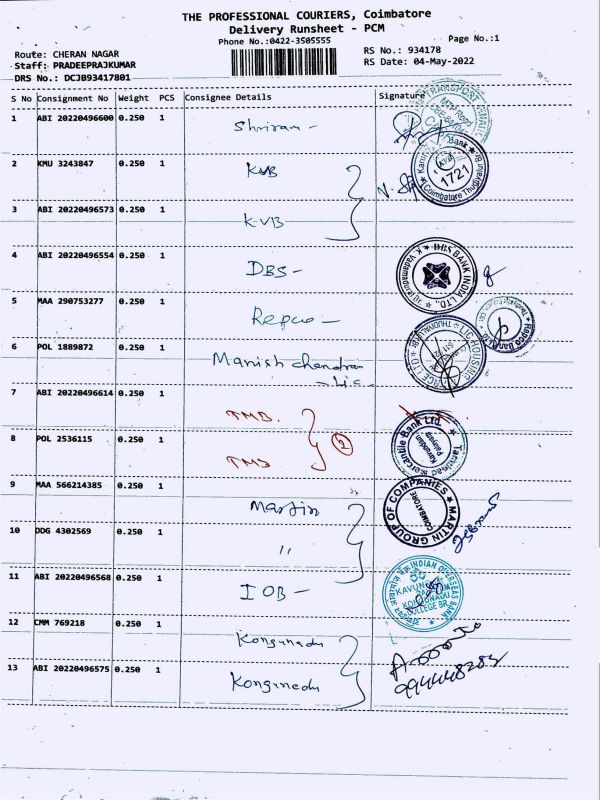 THE PROFESSIONAL COURIERS, Coimbatore
Delivery Runsheet - PCM
Phone No.:0422-3505555
Page No.:1
Route: CHERAN NAGAR
RS No.: 934178
Staff: PRADEEPRAJKUMAR
RS Date: 04-May-2022
DRS No.: DCJB93417801
S No Consignment No Weight PCS Consignee Details Signature
1 ABI 20220496600 0.250 1 Shriram -
2 KMU 3243847 0.250 1 KVB
1721
Coimbatore Thudiyalur
3 ABI 20220496573 0.250 1 KVB
4 ABI 20220496554 0.250 1 DBS -
DBS BANK INDIA LTD.,
5 MAA 290753277 0.250 1 Repco -
Repco Bank
6 POL 1889872 0.250 1 Manish chandran
- Lic.
LIC HOUSING
7 ABI 20220496614 0.250 1 TMB.
2
8 POL 2536115 0.250 1 TMB
Tamilnad Mercantile Bank Ltd.
9 MAA 566214385 0.250 1 Martin
MARTIN GROUP OF COMPANIES
COIMBATORE
10 DDG 4302569 0.250 1 "
11 ABI 20220496568 0.250 1 IOB -
INDIAN OVERSEAS BANK
COLLEGE BR
12 CMM 769218 0.250 1 Kongunadu
13 ABI 20220496575 0.250 1 Kongunadu